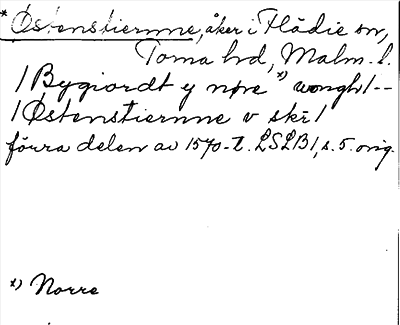 * Østenstiernne, åker i Flädie sn,
Torna hd, Malm. l.
/Bygiordt y nøre *) wongh/--
/Østenstiernne v skr/
förra delen av 1570-t. LSLB1, s. 5. orig.
*) Norre